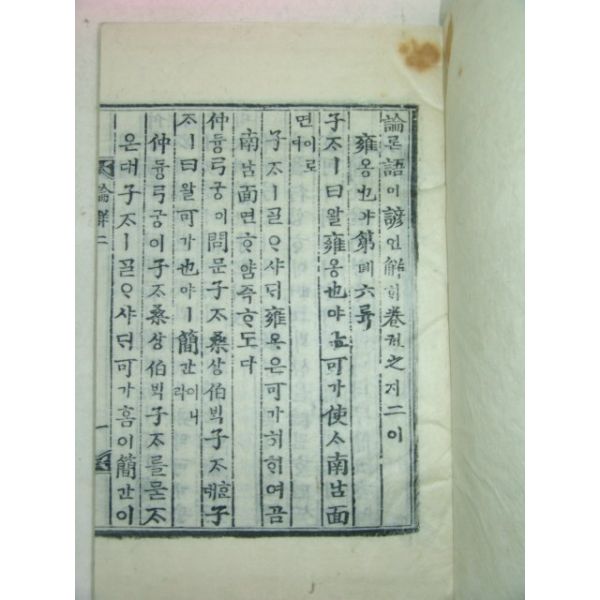 論론語어諺언解ᄒᆡ卷권之지二이
雍옹也야第뎨六륙
子ᄌᆞㅣ曰왈雍옹也야ᄂᆞᆫ可가使ᄉᆞ南남面
면이로다
子ᄌᆞㅣᄀᆞᄅᆞ샤ᄃᆡ雍옹은可가히ᄒᆡ여곰
南남面면ᄒᆞ얌즉ᄒᆞ도다
仲듕弓궁이問문子ᄌᆞ桑상伯ᄇᆡᆨ子ᄌᆞᄒᆞᆫ대子
ᄌᆞㅣ曰왈可가也야ㅣ簡간이니라
仲듕弓궁이子ᄌᆞ桑상伯ᄇᆡᆨ子ᄌᆞ를묻ᄌᆞ
온대子ᄌᆞㅣᄀᆞᄅᆞ샤ᄃᆡ可가홈이簡간이
論解二